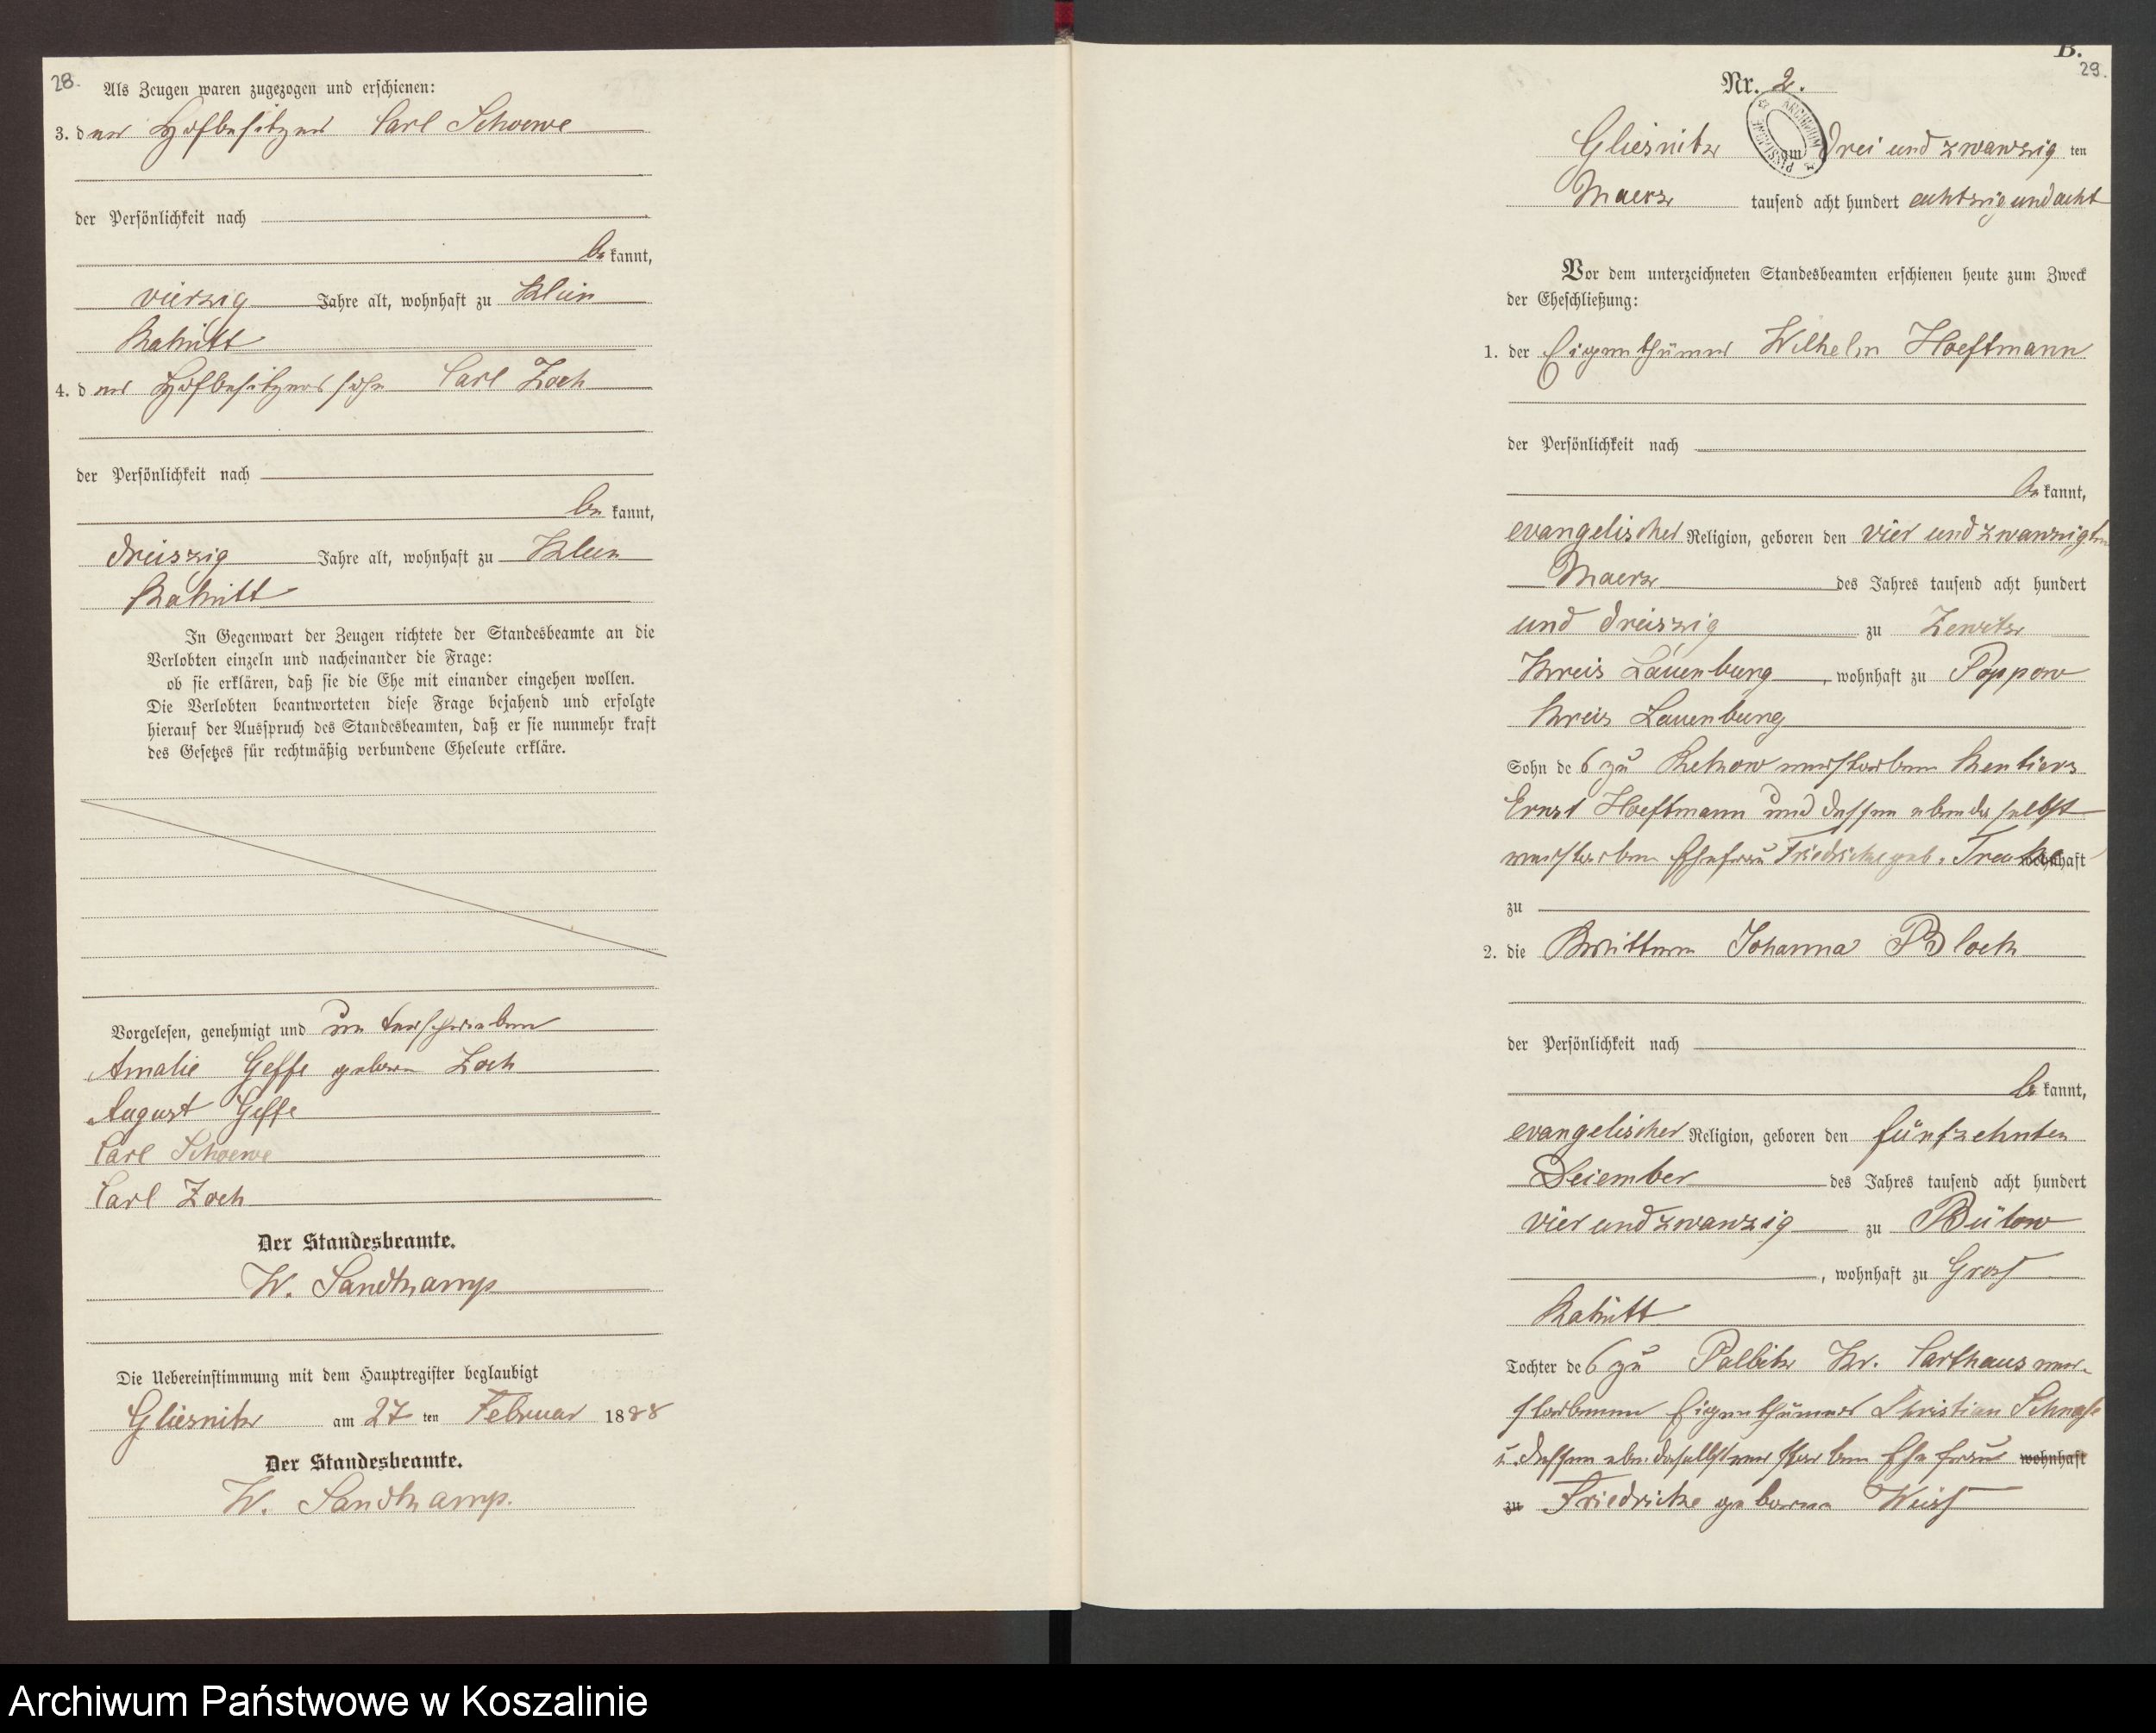 28.
Als Zeugen waren zugezogen und erschienen:
3. der Hofbesitzer Carl Schoewe
der Persönlichkeit nach
be kannt,
vierzig Jahre alt, wohnhaft zu Klein
Rakitt
4. der Hofbesitzersohn Carl Zoch
der Persönlichkeit nach
be kannt,
dreiszig Jahre alt, wohnhaft zu Klein
Rakitt
In Gegenwart der Zeugen richtete der Standesbeamte an die
Verlobten einzeln und nacheinander die Frage:
ob sie erklären, daß sie die Ehe mit einander eingehen wollen.
Die Verlobten beantworteten diese Frage bejahend und erfolgte
hierauf der Ausspruch des Standesbeamten, daß er sie nunmehr kraft
des Gesetzes für rechtmäßig verbundene Eheleute erkläre.
Vorgelesen, genehmigt und unterschrieben
Amalie Geffe geboren Zoch
August Geffe
Carl Schoewe
Carl Zoch
Der Standesbeamte.
W. Sandkamp
Die Uebereinstimmung mit dem Hauptregister beglaubigt
Gliesnitz am 27 ten Februar 1888
Der Standesbeamte.
W. Sandkamp.
B.
29.
Nr. 2.
Gliesnitz am drei und zwanzig ten
Maerz tausend acht hundert achtzig und acht
Vor dem unterzeichneten Standesbeamten erschienen heute zum Zweck
der Eheschließung:
1. der Eigenthümer Wilhelm Hoeftmann
der Persönlichkeit nach
be kannt,
evangelischer Religion, geboren den vier und zwanzigten
Maerz des Jahres tausend acht hundert
und dreiszig zu Zewitz
Kreis Lauenburg, wohnhaft zu Poppow
Kreis Lauenburg
Sohn des zu verstorbenen Rentiers
Ernst Hoeftmann und dessen ebendaselbst
verstorbene Ehefrau Friedricke geb. wohnhaft
zu
2. die Wittwe Johanna Block
der Persönlichkeit nach
be kannt,
evangelischer Religion, geboren den fünfzehnten
Dezember des Jahres tausend acht hundert
vier und zwanzig zu Bütow
, wohnhaft zu Gross
Rakitt
Tochter des zu Kr. Carthaus ver-
storbenen Eigenthümers Christian Schnase
u. dessen ebendaselbst verstorbene Ehefrau wohnhaft
zu Friedricke geborene Weiss
Archiwum Państwowe w Koszalinie